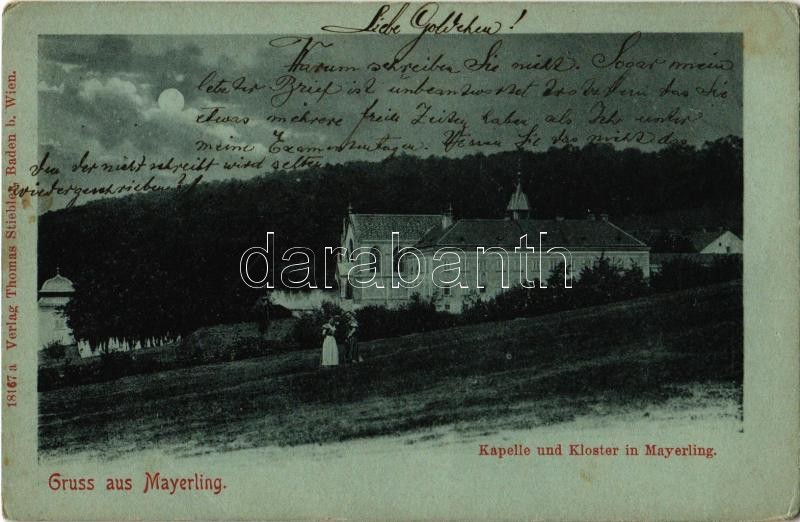 Liebe Goldchen!
Warum schreiben Sie nicht. Sogar mein
letzter Brief ist unbeantwortet trotzdem das Sie
etwas mehrere freie Zeiten haben als Ihr unter
meine Examentagen. Wissen Sie das nicht das
den der nicht schreibt wird selten
wiedergeschrieben?!
darabanth
18167a Verlag Thomas Stiebler, Baden b. Wien.
Kapelle und Kloster in Mayerling.
Gruss aus Mayerling.